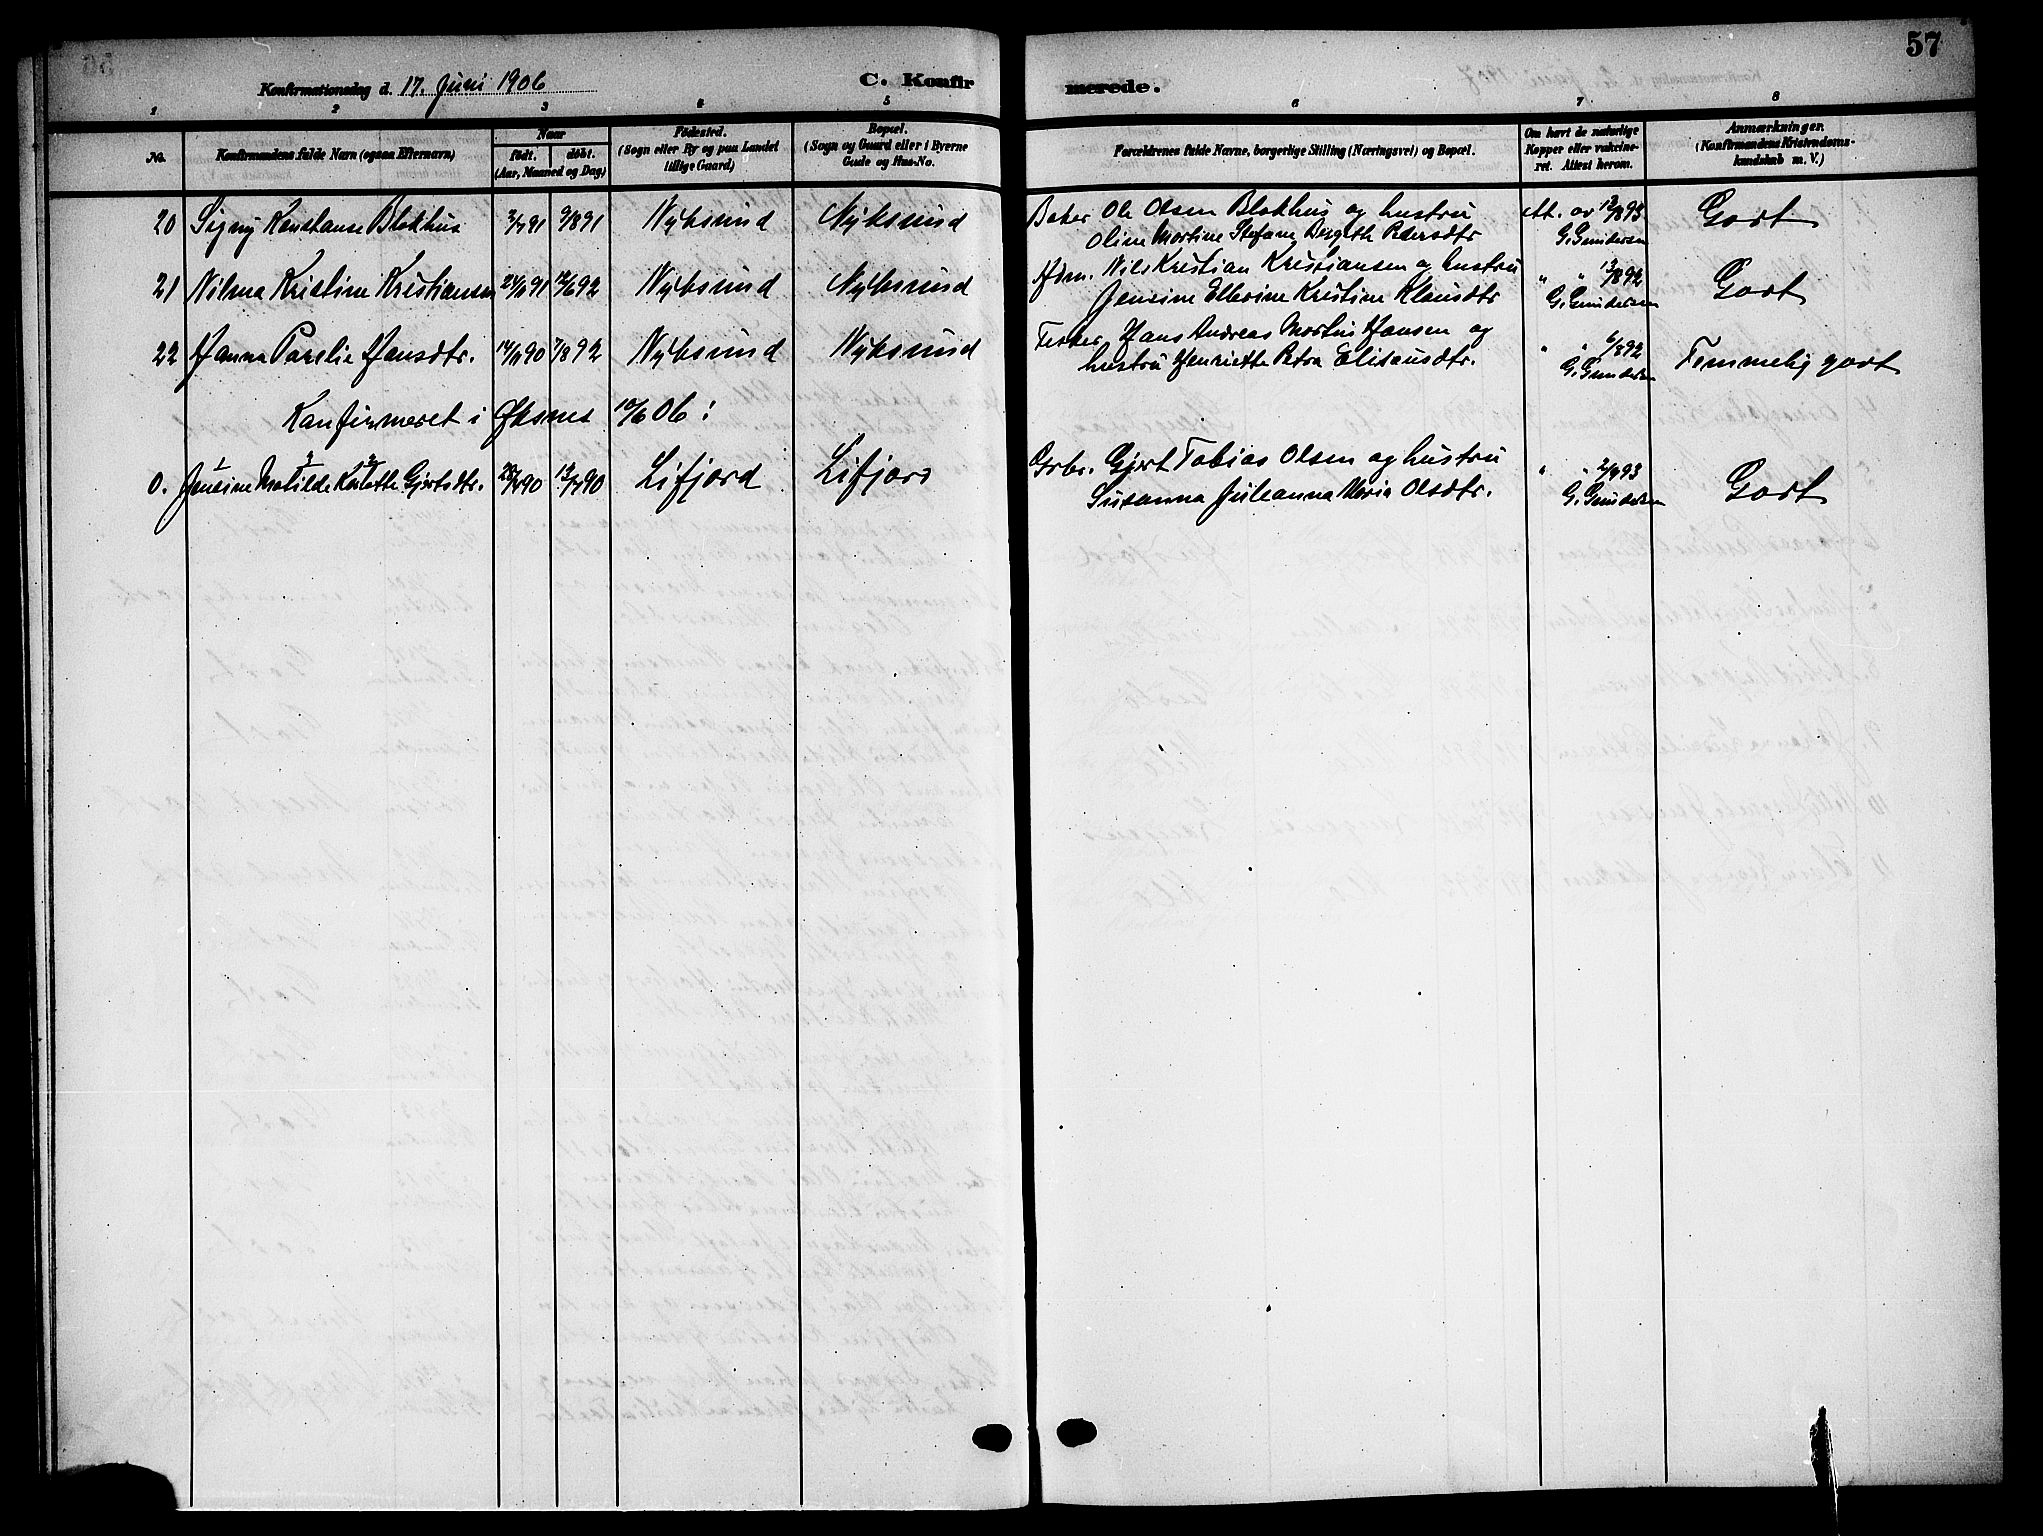 57
Konfirmationsdag d. 17. Juni 1906
C. Konfirmerede.
1 2 3 4 5 6 7 8
No.
Konfirmandens fulde Navn (ogsaa Efternavn)
Naar
født. døbt.
(Aar, Maaned og Dag)
Fødested.
(Sogn eller By og paa Landet
tillige Gaard)
Bopæl.
(Sogn og Gaard eller i Byerne
Gade og Hus-No.
Forældrenes fulde Navne, borgerlige Stilling (Næringsvei) og Bopæl.
Om havt de naturlige
Kopper eller vakcine-
ret. Attest herom.
Anmærkninger.
(Konfirmandens Kristendoms-
kundskab m. V.)
20 Signy Konstanse Blokhus 91 9/8 91 Nyksund Nyksund Baker Ole Olsen Blokhus og hustru Att. av 12/8 93 Godt
Oline Martine Stefane Bergith Pedersdtr G. Gundersen
21 Vilma Kristine Kristiansen 91 12/6 92 Nyksund Nyksund Hdm. Nils Kristian Kristiansen og hustru " " 13/8 92 Godt
Jensine Ellerine Kristine Klausdtr G. Gundersen
22 Hanna Parelie Hansdtr. 14/11 90 7/8 92 Nyksund Nyksund Fisker Hans Andreas Martin Hansen og " " 6/8 92 Temmelig godt
hustru Henriette Petra Elisausdtr. G. Gundersen
Konfirmeret i Øksnes 10/6 06:
0. Jensine Matilde Kaiette Gjertsdtr. 90 90 Lifjord Lifjord Grbr. Gjert Tobias Olsen og hustru " " 2/9 93 Godt
Susanna Juleanna Maria Olsdtr. G. Gundersen